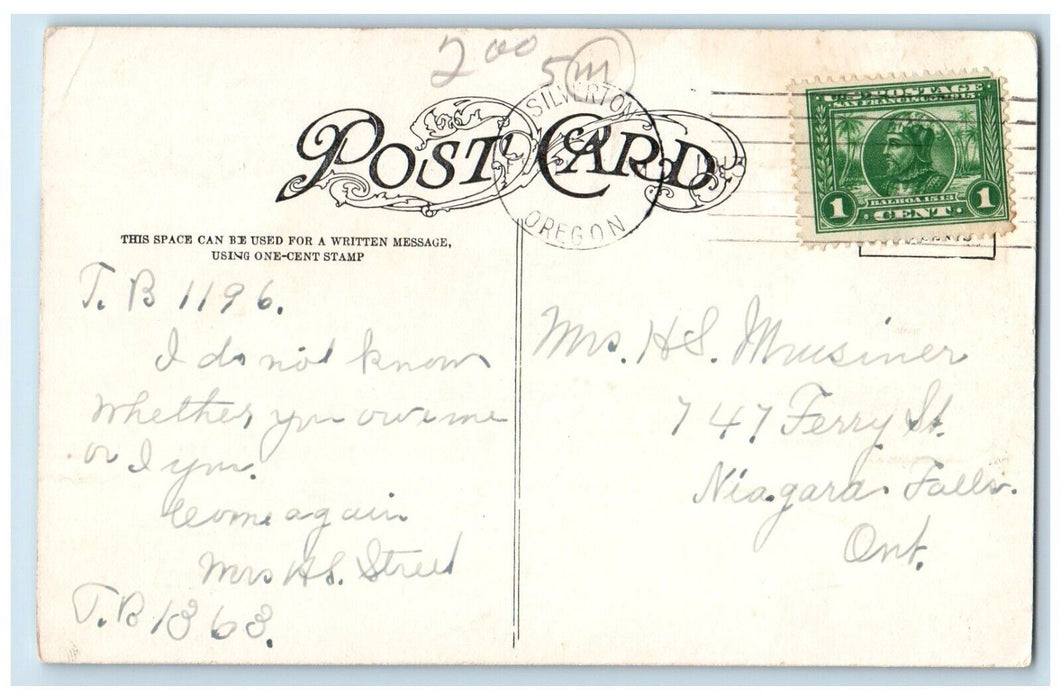 2 00
5 m
SILVERTON
OREGON
POST CARD
U.S. POSTAGE
SAN FRANCISCO 1915
BALBOA 1513
1 CENT 1
THIS SPACE CAN BE USED FOR A WRITTEN MESSAGE,
USING ONE-CENT STAMP
T. B 1196.
I do not know
whether you owe me
or I you.
Come again
Mrs H S. Street
T. B 1363.
Mrs. H S.
747 Ferry St.
Niagara Falls.
Ont.